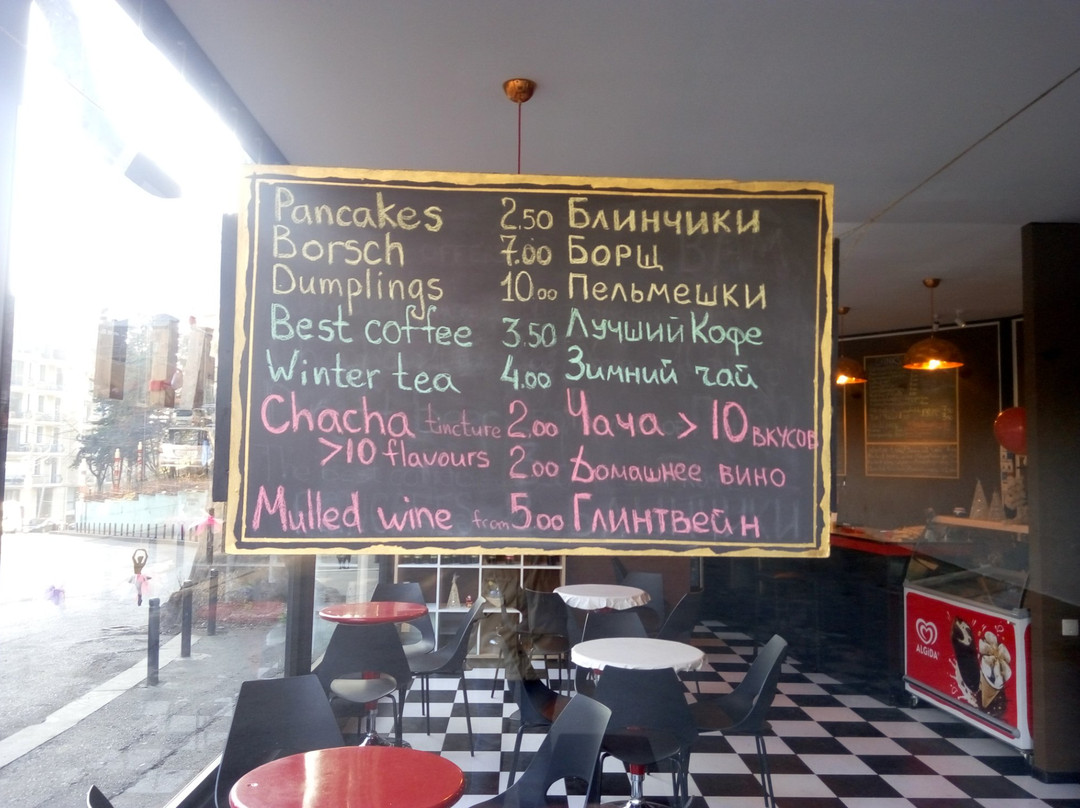 Pancakes 2.50 Блинчики
Borsch 7.00 Борщ
Dumplings 10.00 Пельмешки
Best coffee 3.50 Лучший Кофе
Winter tea 4.00 Зимний чай
Chacha tincture 2.00 Чача > 10 вкусов
>10 flavours 2.00 Домашнее вино
Mulled wine from 5.00 Глинтвейн
ALGIDA